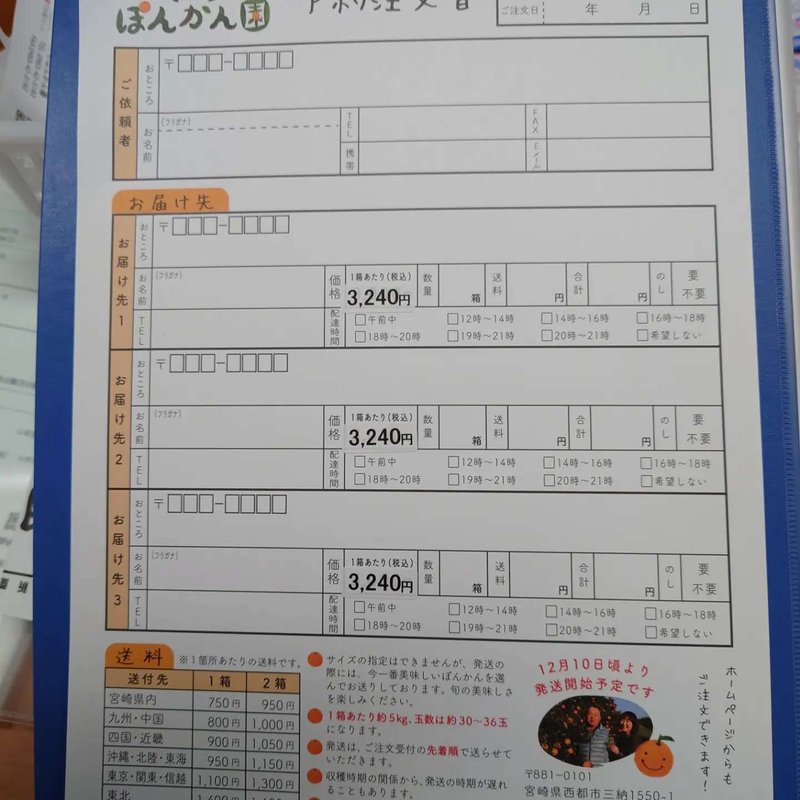 ぽんかん園
ご注文日 年 月 日
ご依頼者
おところ
〒□□□-□□□□
お名前
(フリガナ)
TEL
FAX
携帯
Eメール
お届け先
お届け先1
おところ
〒□□□-□□□□
お名前
(フリガナ)
価格
1箱あたり(税込)
3,240円
数量
箱
送料
円
合計
円
のし
要
不要
TEL
配達時間
□午前中 □12時〜14時 □14時〜16時 □16時〜18時
□18時〜20時 □19時〜21時 □20時〜21時 □希望しない
お届け先2
おところ
〒□□□-□□□□
お名前
(フリガナ)
価格
1箱あたり(税込)
3,240円
数量
箱
送料
円
合計
円
のし
要
不要
TEL
配達時間
□午前中 □12時〜14時 □14時〜16時 □16時〜18時
□18時〜20時 □19時〜21時 □20時〜21時 □希望しない
お届け先3
おところ
〒□□□-□□□□
お名前
(フリガナ)
価格
1箱あたり(税込)
3,240円
数量
箱
送料
円
合計
円
のし
要
不要
TEL
配達時間
□午前中 □12時〜14時 □14時〜16時 □16時〜18時
□18時〜20時 □19時〜21時 □20時〜21時 □希望しない
送料 ※1箇所あたりの送料です。
送付先 1箱 2箱
宮崎県内 750円 950円
九州・中国 800円 1,000円
四国・近畿 900円 1,050円
沖縄・北陸・東海 950円 1,150円
東京・関東・信越 1,100円 1,300円
東北
サイズの指定はできませんが、発送の
際には、今一番美味しいぽんかんを選
んでお送りしております。旬の美味しさ
を楽しみください。
1箱あたり約5kg、玉数は約30〜36玉
になります。
発送は、ご注文受付の先着順で送らせて
いただきます。
収穫時期の関係から、発送の時期が遅れ
ることもあります。
12月10日頃より
発送開始予定です
〒881-0101
宮崎県西都市三納1550-1
ホームページからも
ご注文できます!